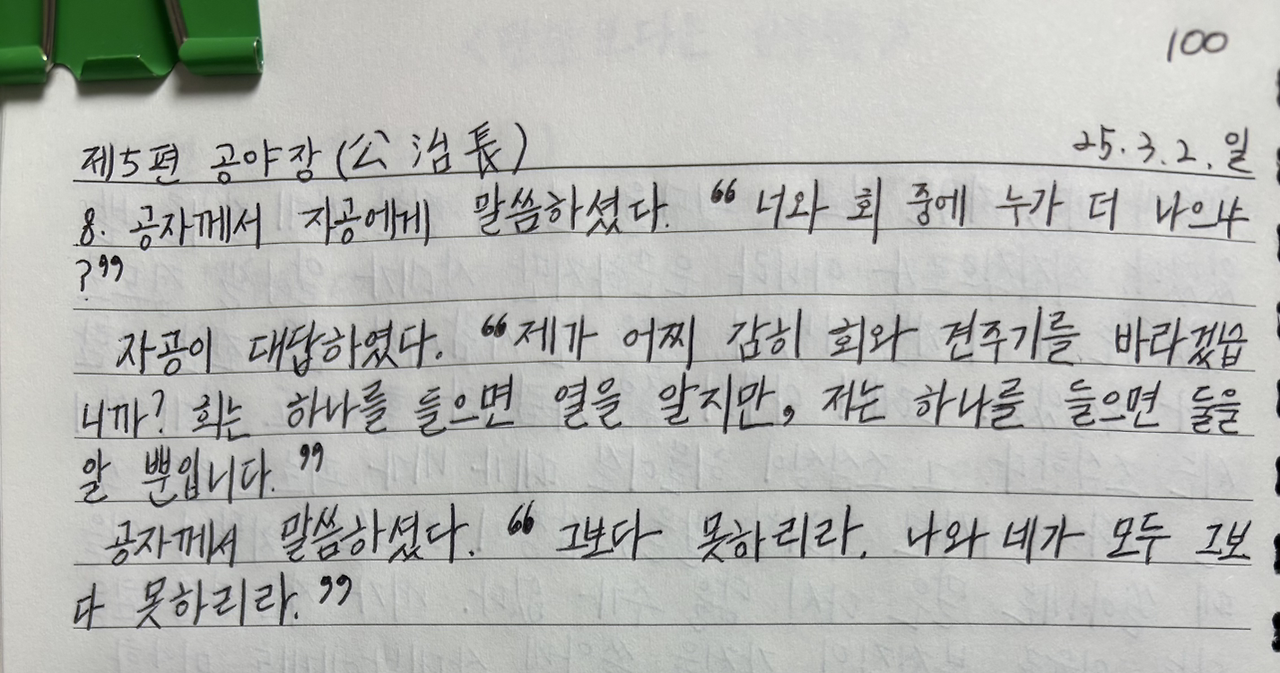 100
제5편 공야장(公冶長) 25.3.2.일
8. 공자께서 자공에게 말씀하셨다. “너와 회 중에 누가 더 나으냐
?”
자공이 대답하였다. “제가 어찌 감히 회와 견주기를 바라겠습
니까? 회는 하나를 들으면 열을 알지만, 저는 하나를 들으면 둘을
알 뿐입니다.”
공자께서 말씀하셨다. “그보다 못하리라. 나와 네가 모두 그보
다 못하리라.”